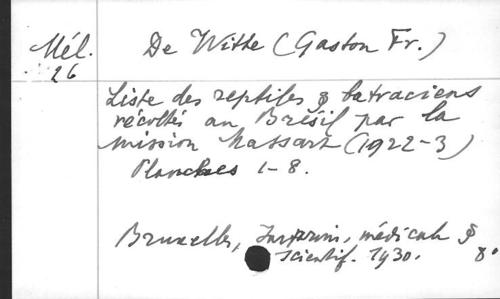 Mél. De Witte (Gaston Fr.)
26
Liste des reptiles & batraciens
récoltés au Brésil par la
mission Massart (1922-3)
Planches 1-8.
Bruxelles, Imprim. médicale &
scientif. 1930. 8°